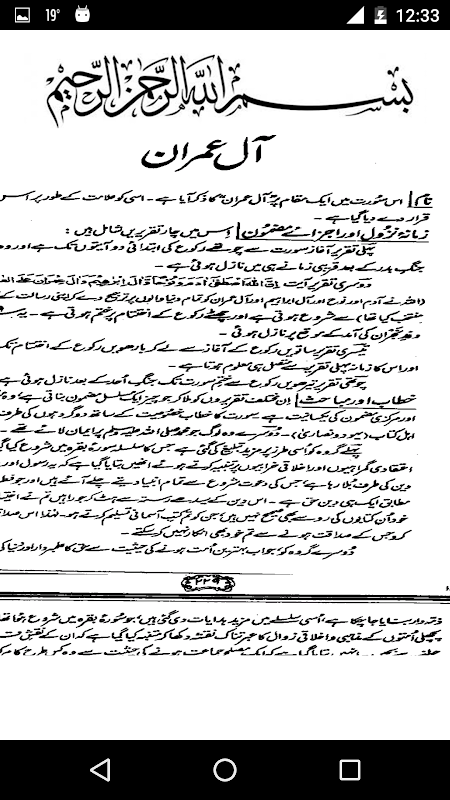 19° 12:33
بسم الله الرحمن الرحيم
آل عمران
نام | اس سورت میں ایک مقام پر "آل عمران" کا ذکر آیا ہے۔ اسی کو علامت کے طور پر اس
قرار دے دیا گیا ہے۔
زمانۂ نزول اور اجزائے مضمون | اس میں چار تقریریں شامل ہیں:
پہلی تقریر آغاز سورت سے چوتھے رکوع کی ابتدائی دو آیتوں تک ہے اور وہ
جنگ بدر کے بعد قریبی زمانے ہی میں نازل ہوئی ہے۔
دوسری تقریر آیت اِنَّ اللّٰهَ اصْطَفٰٓى اٰدَمَ وَنُوْحًا وَّاٰلَ اِبْرٰهِيْمَ وَاٰلَ عِمْرٰنَ عَلَى
(اللہ نے آدم اور نوح اور آل ابراہیم اور آل عمران کو تمام دنیا والوں پر ترجیح دے کر اپنی رسالت کے
منتخب کیا تھا) سے شروع ہوتی ہے اور چھٹے رکوع کے اختتام پر ختم ہوتی ہے۔
وفد نجران کی آمد کے موقع پر نازل ہوئی۔
تیسری تقریر ساتویں رکوع کے آغاز سے لے کر بارھویں رکوع کے اختتام تک
اور اس کا زمانہ پہلی تقریر سے متصل ہی معلوم ہوتا ہے۔
چوتھی تقریر تیرھویں رکوع سے ختم سورت تک جنگ احد کے بعد نازل ہوئی ہے
خطاب اور مباحث | ان مختلف تقریروں کو ملا کر جو چیز ایک مسلسل مضمون بناتی ہے وہ
اور مرکزی مضمون کی یکسانیت ہے۔ سورت کا خطاب خصوصیت کے ساتھ دو گروہوں کی طرف
اہل کتاب (یہود و نصاریٰ)۔ دوسرے وہ لوگ جو محمد صلی اللہ علیہ وسلم پر ایمان لائے تھے۔
پہلے گروہ کو اسی طرز پر مزید تبلیغ کی گئی ہے جس کا سلسلہ سورۂ بقرہ میں شروع کیا گیا
اعتقادی گمراہیوں اور اخلاقی خرابیوں پر تنبیہ کرتے ہوئے انھیں بتایا گیا ہے کہ یہ رسول اور
دین کی طرف بلا رہا ہے جس کی دعوت شروع سے تمام انبیا دیتے چلے آئے ہیں اور جو فطرت
مطابق ایک ہی دین حق ہے۔ اس دین کے سیدھے رستہ سے ہٹ کر جو راہیں تم نے
خود ان کتابوں کی رو سے بھی صحیح نہیں ہیں جن کو تم کتب آسمانی تسلیم کرتے ہو۔ لہٰذا اس صداقت
کرو جس کے صداقت ہونے سے تم خود بھی انکار نہیں کر سکتے۔
دوسرے گروہ کو جو اب بہترین امت ہونے کی حیثیت سے حق کا علمبردار اور دنیا کی
۲۲۹
ذمہ دار بنایا جا چکا ہے، اسی سلسلے میں مزید ہدایات دی گئی ہیں جو سورۂ بقرہ میں شروع ہوا تھا
پچھلی امتوں کے مذہبی و اخلاقی زوال کا عبرتناک نقشہ دکھا کر متنبہ کیا گیا ہے کہ ان کے نقش قدم